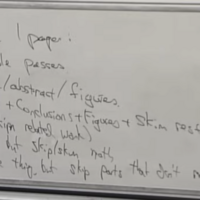 1 paper.
passes
/abstract/figures
+ Conclusions + Figures + Skim rest
related work)
but skip/skim math
thing, but skip parts that don't